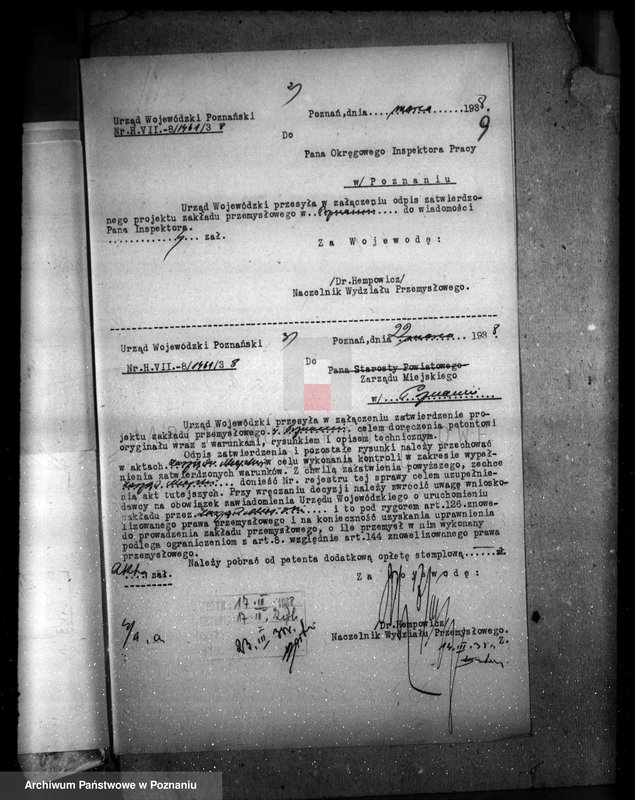 2/
Urząd Wojewódzki Poznański
Poznań, dnia....marca......1938.
Nr.H.VII.-8/1461/3 8
9
Do
Pana Okręgowego Inspektora Pracy
w/ Poznaniu
Urząd Wojewódzki przesyła w załączeniu odpis zatwierdzo-
nego projektu zakładu przemysłowego w..Poznaniu.... do wiadomości
Pana Inspektora.
zał.
Za Wojewodę:
/Dr.Hempowicz/
Naczelnik Wydziału Przemysłowego.
Urząd Wojewódzki Poznański
3/
Poznań, dnia 22 marca ...1938.
Nr.H.VII.-8/1461/3 8
Do
Pana Starosty Powiatowego
Zarządu Miejskiego
w/ Poznaniu
Urząd Wojewódzki przesyła w załączeniu zatwierdzenie pro-
jektu zakładu przemysłowego w Poznaniu. celem doręczenia petentowi
oryginału wraz z warunkami, rysunkiem i opisem technicznym.
Odpis zatwierdzenia i pozostałe rysunki należy przechować
w aktach. Zarządu Miejskiego w celu wykonania kontroli w zakresie wypeł-
nienia zatwierdzonych warunków. Z chwilą załatwienia powyższego, zechce
Zarząd Miejski.... donieść Nr. rejestru tej sprawy celem uzupełnie-
nia akt tutejszych. Przy wręczaniu decyzji należy zwrócić uwagę wniosko-
dawcy na obowiązek zawiadomienia Urzędu Wojewódzkiego o uruchomieniu
zakładu przez .... i to pod rygorem art.126.znowe-
lizowanego prawa przemysłowego i na konieczność uzyskania uprawnienia
do prowadzenia zakładu przemysłowego, o ile przemysł w nim wykonany
podlega ograniczeniom z art.8. względnie art.144 znowelizowanego prawa
przemysłowego.
Należy pobrać od petenta dodatkową opłatę stemplową......zł
Akta
zał.
Za Wojewodę:
17. III. 1938
17. III.
23. III. 38.
/Dr.Hempowicz/
4/ a.a
Naczelnik Wydziału Przemysłowego.
Z.
14. III. 38.
Archiwum Państwowe w Poznaniu